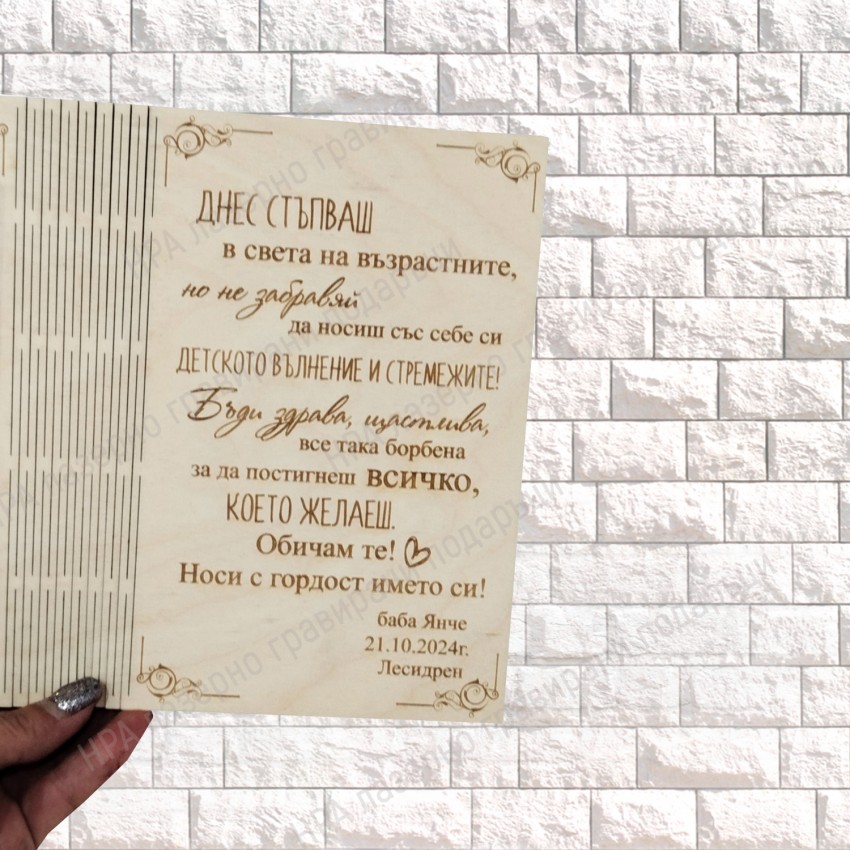 ДНЕС СТЪПВАШ
в света на възрастните,
но не забравяй
да носиш със себе си
ДЕТСКОТО ВЪЛНЕНИЕ И СТРЕМЕЖИТЕ!
Бъди здрава, щастлива,
все така борбена
за да постигнеш ВСИЧКО,
КОЕТО ЖЕЛАЕШ.
Обичам те!
Носи с гордост името си!
баба Янче
21.10.2024г.
Лесидрен
НРА лазерно гравирани подаръци